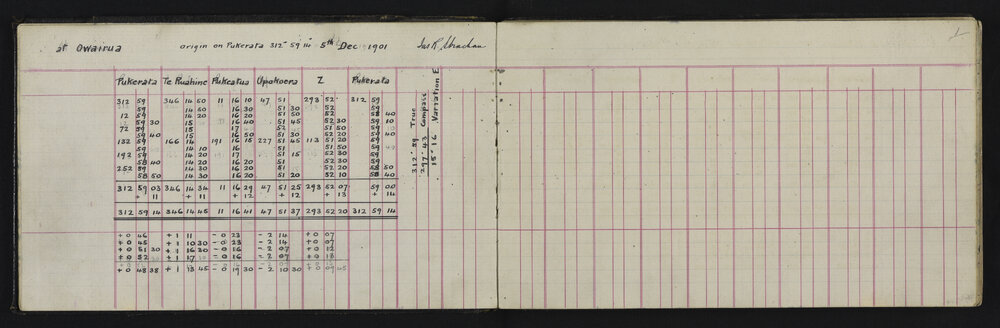 at Owairua Origin on Pukerata 312° 59' 14" 5th Dec 1901 Jas R. Strachan
Pukerata Te Ruahine Pukeatua Upokoera Z Pukerata
312 59 346 14 50 11 16 10 47 51 293 52 312 59
59 14 50 16 30 51 30 52 59
12 59 14 20 16 20 51 20 52 58 40
59 30 15 16 40 51 45 52 30 59 10
72 59 15 17 52 51 50 59
59 40 15 16 20 51 30 52 20 59 40
132 59 166 14 191 16 15 227 51 45 113 51 20 59
59 14 10 16 51 51 50 59
192 59 14 20 17 51 15 52 30 59
58 40 14 20 16 20 51 52 30 59
252 59 14 30 16 20 51 52 20 58 50
58 50 14 30 16 51 20 52 10 58 40
312 59 03 346 14 34 11 16 29 47 51 25 293 52 07 59 00
+ 11 + 11 + 12 + 12 + 13 + 14
312 59 14 346 14 45 11 16 41 47 51 37 293 52 20 312 59 14
+0 46 +1 11 -0 23 -2 14 +0 07
+0 45 +1 10 30 -0 23 -2 14 +0 07
+0 51 30 +1 16 30 -0 16 -2 07 +0 12
+0 52 +1 17 -0 16 -2 07 +0 13
+0 48 38 +1 13 45 -0 19 30 -2 10 30 +0 09 45
312° 59 True
297° 43 Compass
15° 16 Variation E